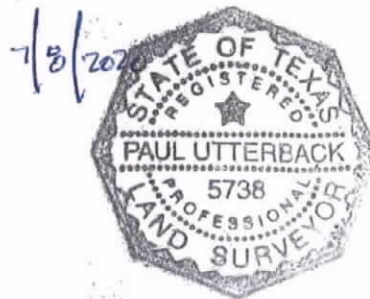 7/8/2020
STATE OF TEXAS
REGISTERED
PAUL UTTERBACK
5738
PROFESSIONAL
LAND SURVEYOR